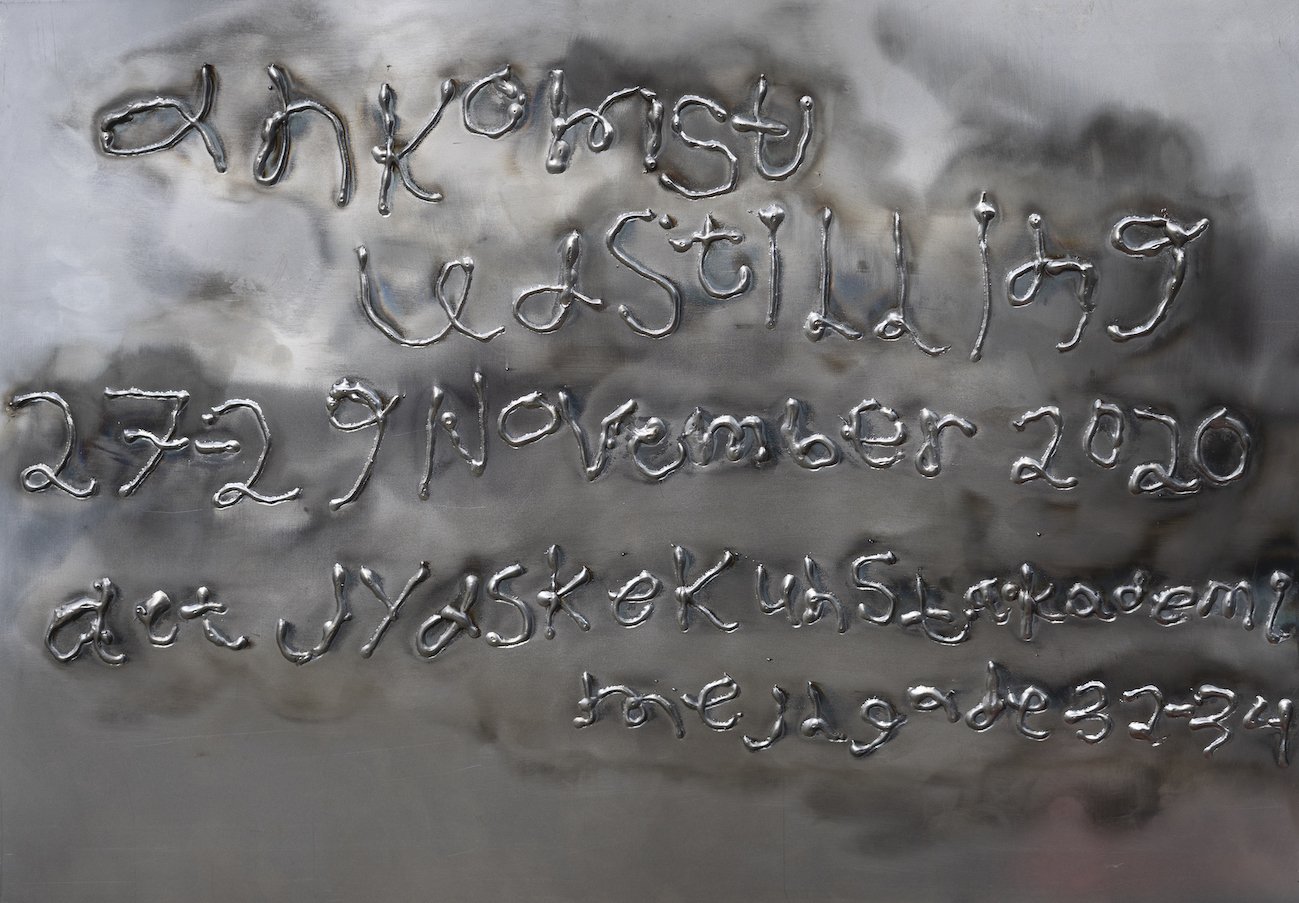 ankomst
udStilling
27-29 November 2020
det JYdSke KunStakademi
mejlgade 32-34